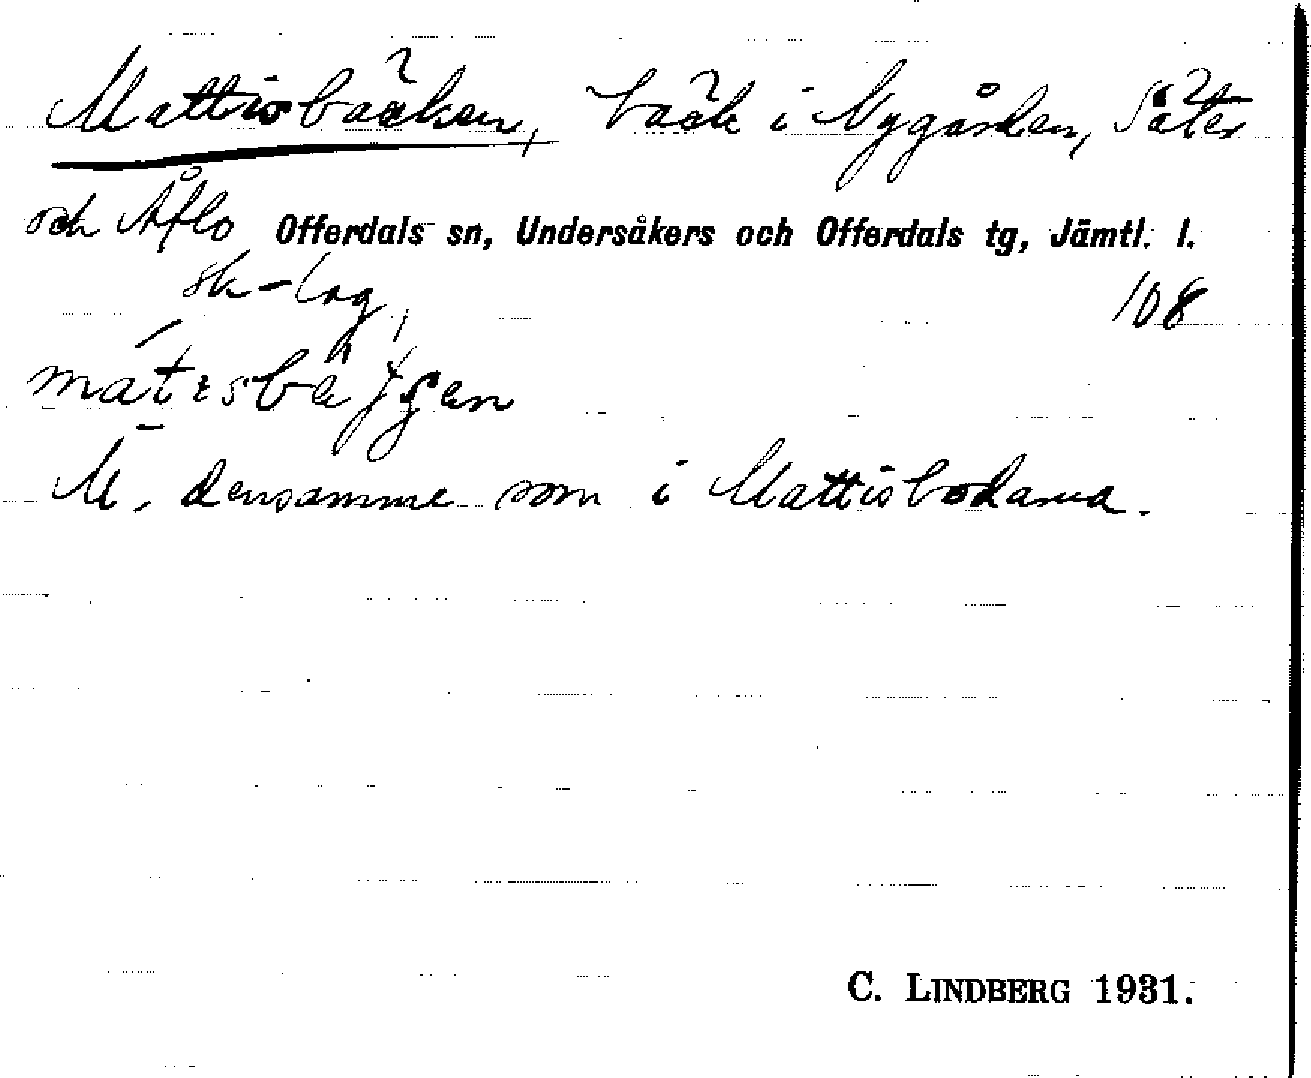 Mattisbäcken, bäck i Nygården, Säter
och Åflo Offerdals sn, Undersåkers och Offerdals tg, Jämtl. l.
sk-lag, 108
M. densamme som i Mattisbodarna.
C. LINDBERG 1931.